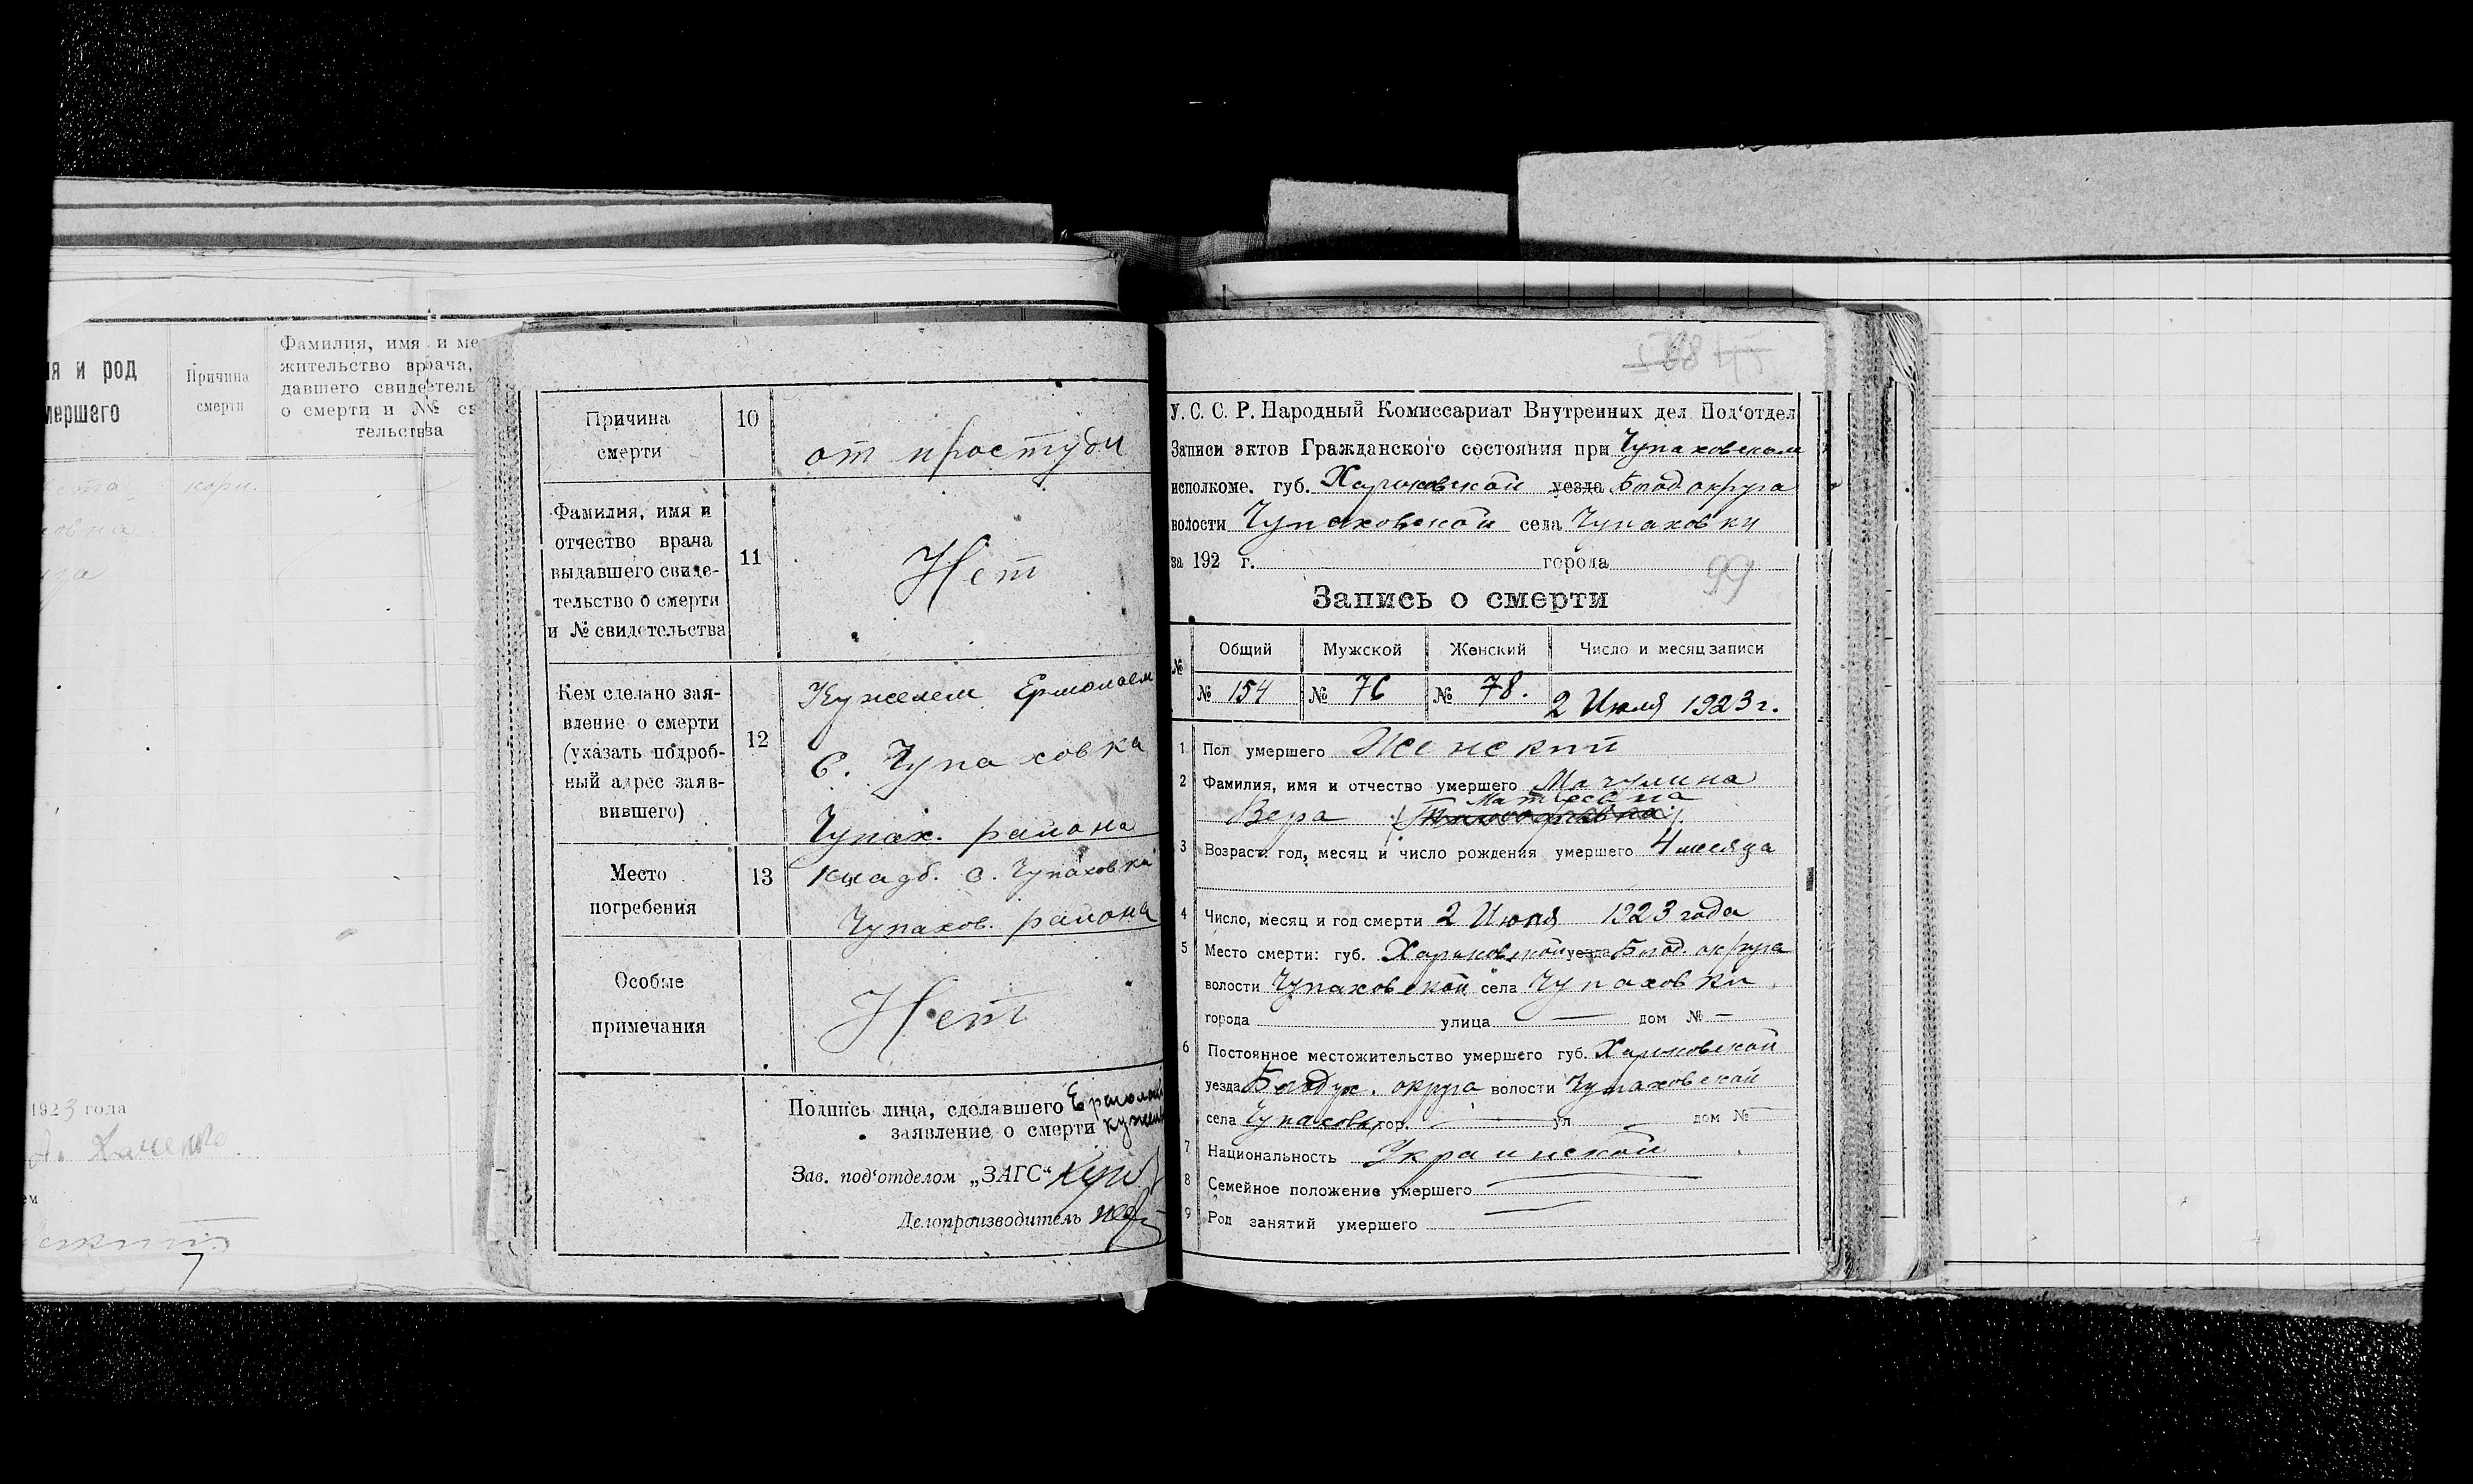 ия и род
мершего
Причина
смерти
Фамилия, имя и ме
жительство врача,
давшего свидетель
о смерти и №№ св
тельства
кори.
овна
1923 года
Причина
смерти
10
от простуди
Фамилия, имя и
отчество врача
выдавшего свиде-
тельство о смерти
и № свидетельства
11
Нет
Кем сделано зая-
вление о смерти
(указать подроб-
ный адрес заяв-
вившего)
12
Кужелем Ермолаем
С. Чупаховка
Чупах. района
Место
погребения
13
Кладб. с. Чупаховки
Чупахов. района
Особые
примечания
Нет
Подпись лица, сделавшего Ермолай
заявление о смерти Кужель
Зав. под'отделом „ЗАГС“
Делопроизводитель
У. С. С. Р. Народный Комиссариат Внутренных дел Под'отдел
Записи актов Гражданского состояния при Чупаховском
исполкоме. губ. Харьковской уезда Богод округа
волости Чупаховской села Чупаховки
за 192 г. города
99
Запись о смерти
№ Общий Мужской Женский Число и месяц записи
№ 154 № 76 № 78. 2 Июля 1923 г.
1 Пол умершего Женский
2 Фамилия, имя и отчество умершего Мачулина
Матвеевна
Вера
3 Возраст: год, месяц и число рождения умершего 4 месяца
4 Число, месяц и год смерти 2 Июля 1923 года
5 Место смерти: губ. Харьковской уезда Богод. округа
волости Чупаховской села Чупаховки
города улица — дом № —
6 Постоянное местожительство умершего губ. Харьковской
уезда Богодух. округа волости Чупаховской
села Чупаховки гор. — ул. дом № —
7 Национальность Украинской
8 Семейное положение умершего —
9 Род занятий умершего —